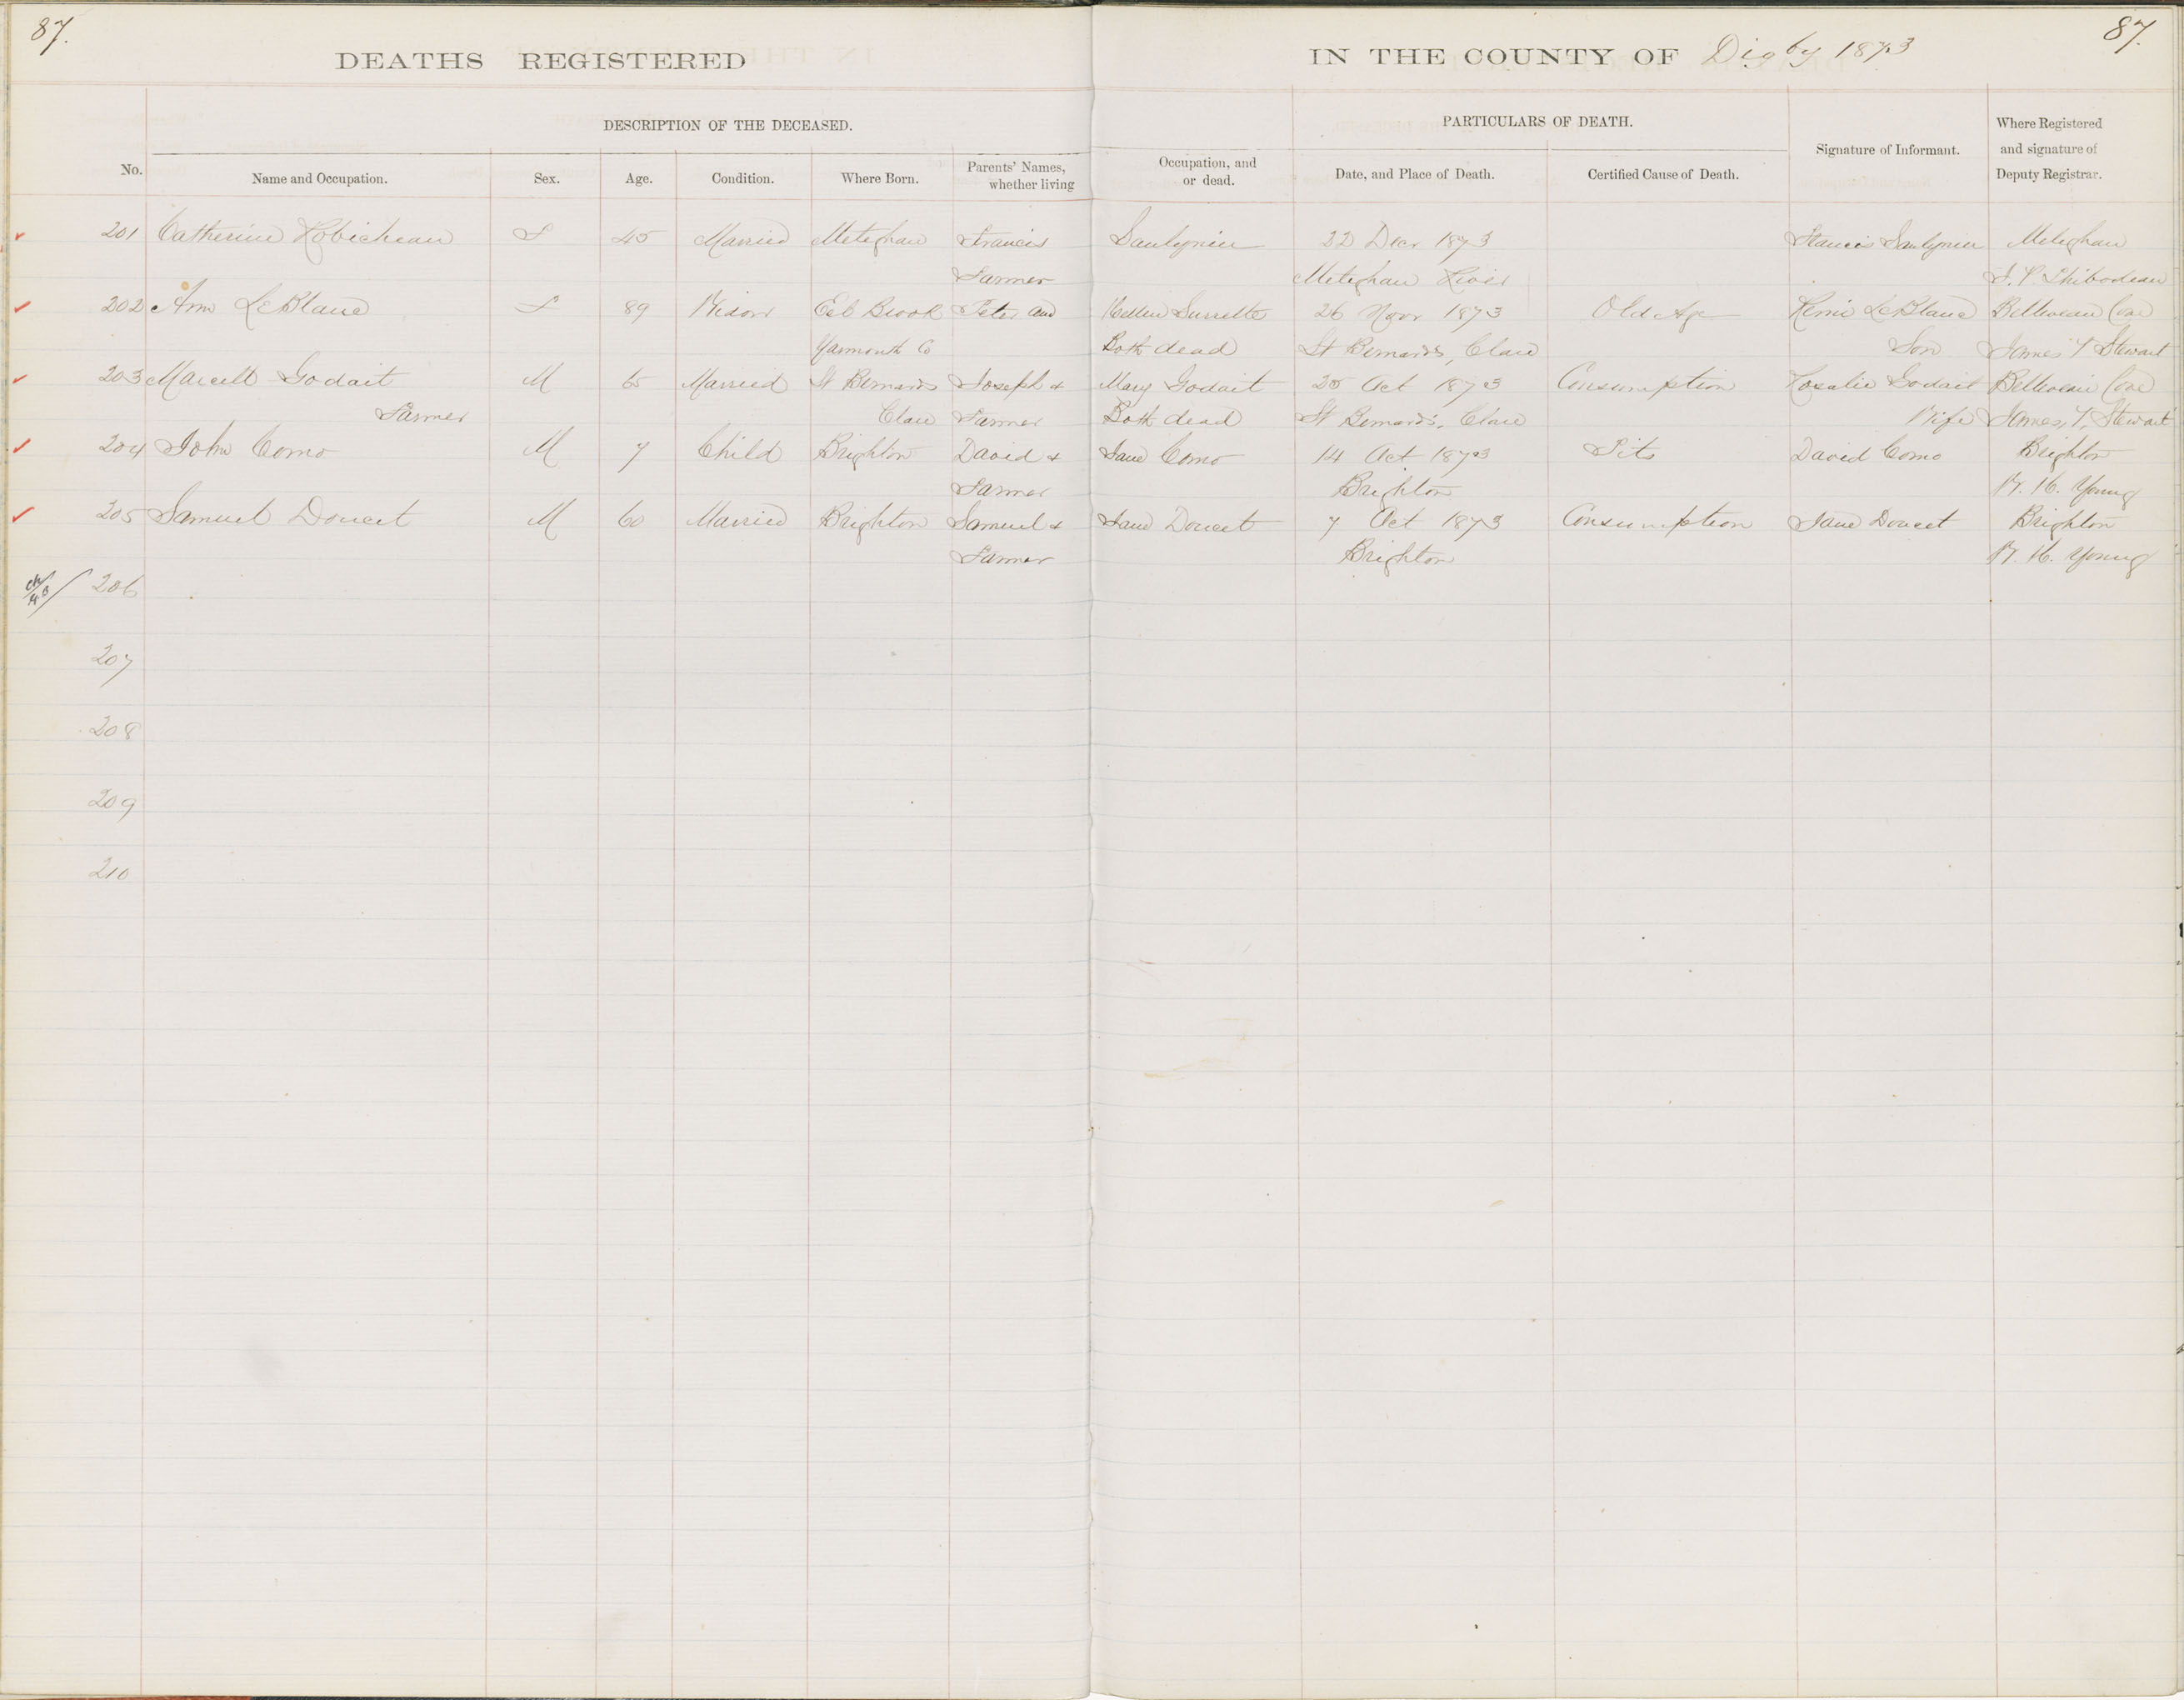 87.
87.
DEATHS REGISTERED IN THE COUNTY OF Digby 1873
DESCRIPTION OF THE DECEASED.
PARTICULARS OF DEATH.
No. Name and Occupation. Sex. Age. Condition. Where Born. Parents' Names, whether living Occupation, and or dead. Date, and Place of Death. Certified Cause of Death. Signature of Informant. Where Registered and signature of Deputy Registrar.
201 Catherine Robicheau F 45 Married Meteghan Francis Saulynier 22 Decr 1873 Francis Saulynier Meteghan
Farmer Meteghan River Thibodeau
202 Ann LeBlanc F 89 Widow Eel Brook Peter and Hellen Surrette 26 Novr 1873 Old Age Remi LeBlanc Belliveau Cove
Yarmouth Co Both dead St Bernards, Clare Son James Y Stewart
203 Marcell Godait M 65 Married St Bernards Joseph & Mary Godait 25 Oct 1873 Consumption Rosalie Godait Belliveau Cove
Farmer Clare Farmer Both dead St Bernards, Clare Wife James Y, Stewart
204 John Como M 7 Child Brighton David & Jane Como 14 Oct 1873 Fits David Como Brighton
Farmer Brighton W. H. Young
205 Samuel Doucet M 60 Married Brighton Samuel & Jane Doucet 7 Oct 1873 Consumption Jane Doucet Brighton
Farmer Brighton W. H. Young
206
207
208
209
210